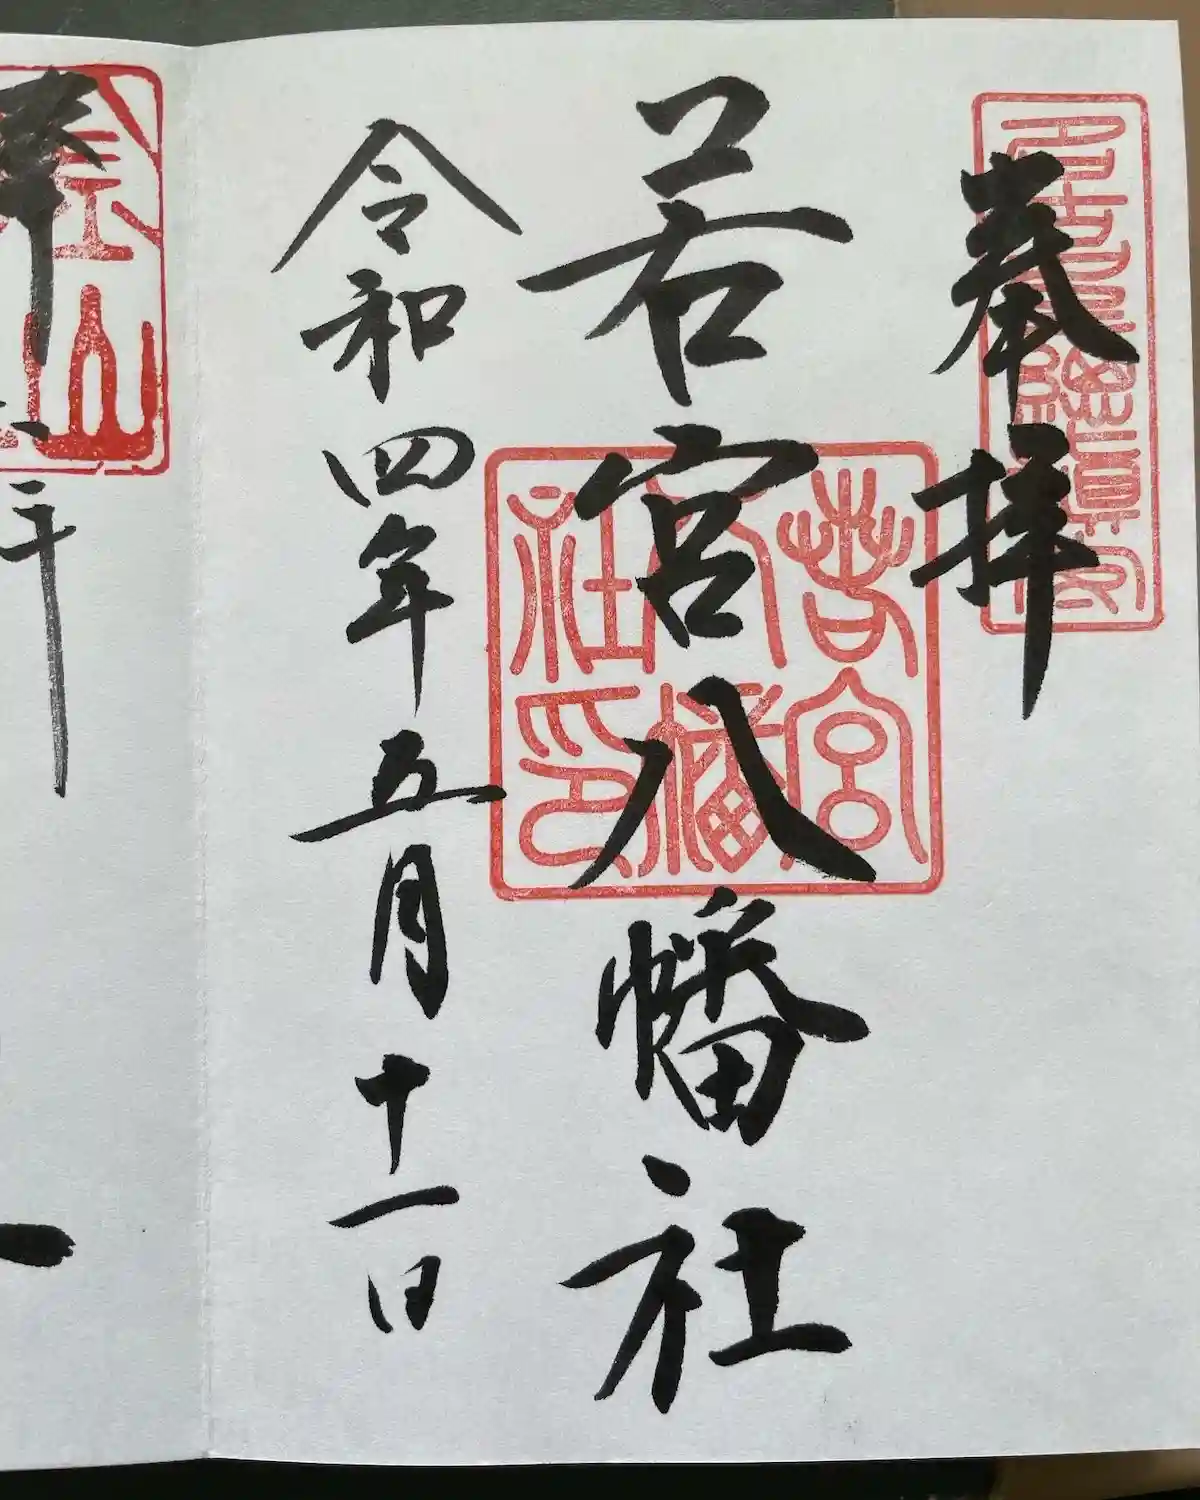 奉拝
若宮八幡社
若宮八幡社印
令和四年五月十一日